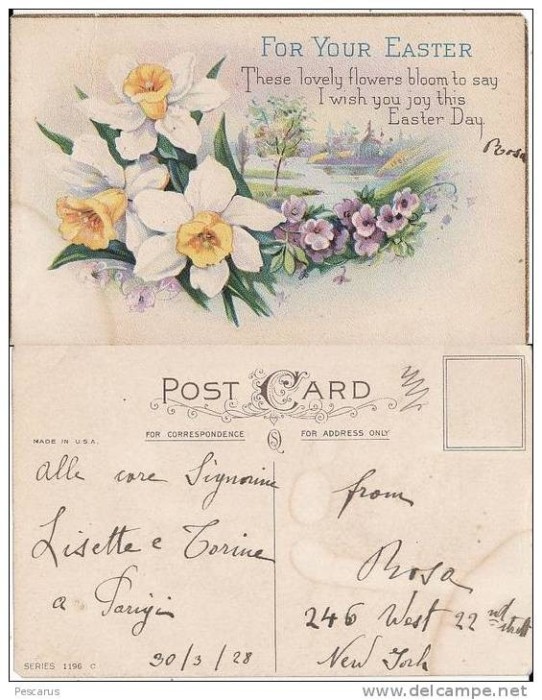 FOR YOUR EASTER
These lovely flowers bloom to say
I wish you joy this
Easter Day
Rosa
POST CARD
FOR CORRESPONDENCE
FOR ADDRESS ONLY
MADE IN U.S.A.
alle care Signorine
Lisette e Torine
a Parigi
30/3/28
SERIES 1196 C
from
Rosa
246 West 22nd street
New York
Pescarus
delcampe.net